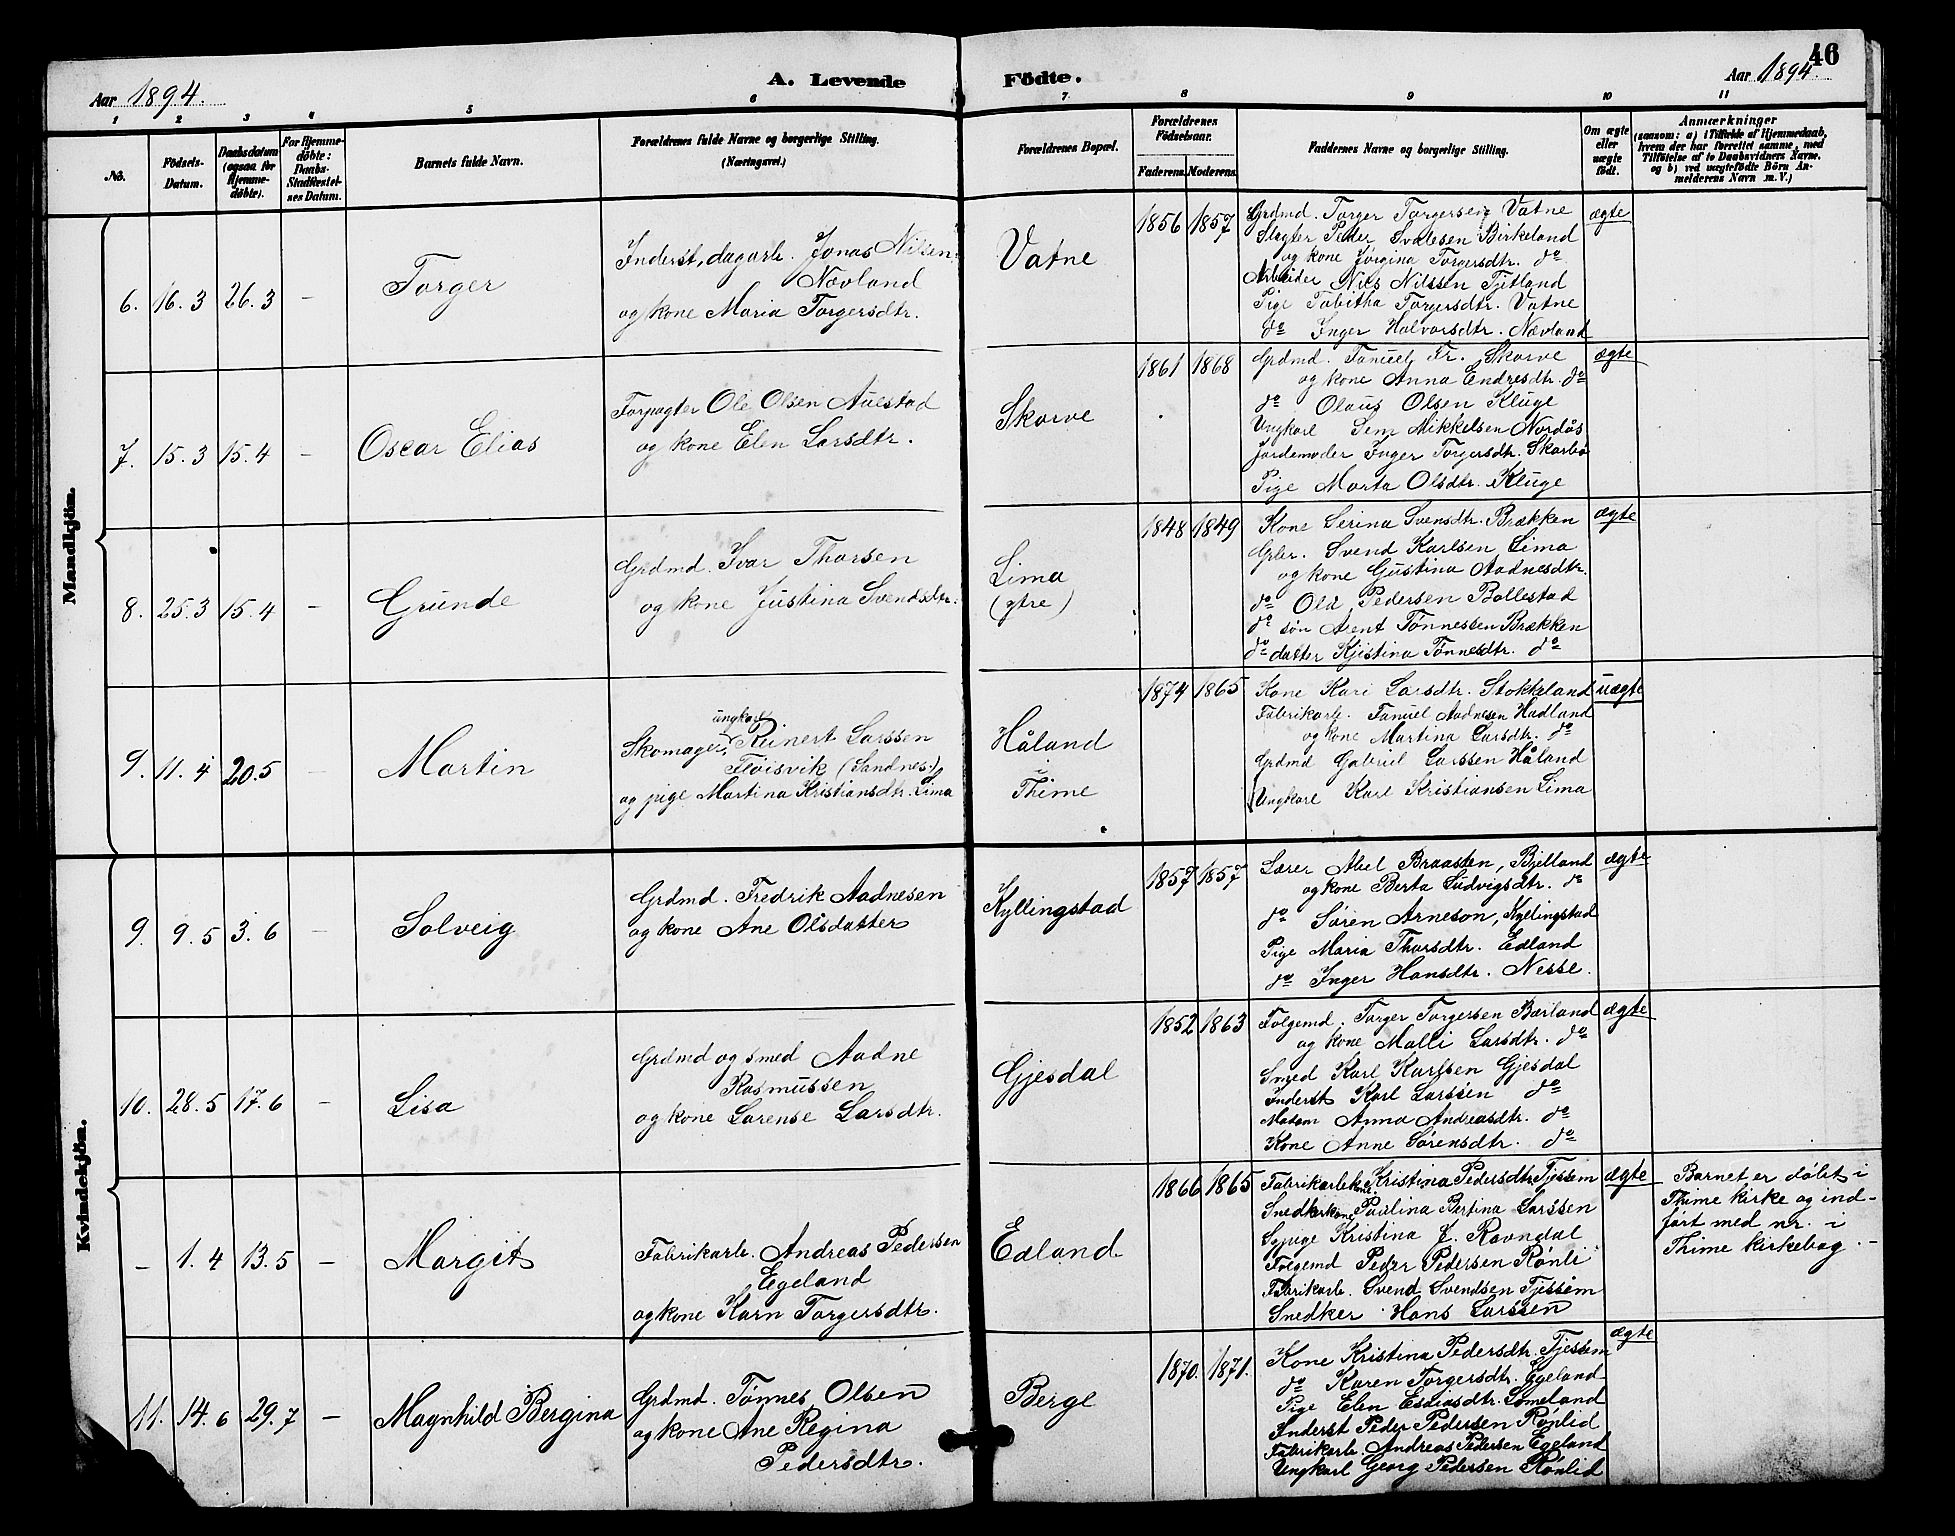 46
Aar 1894.
A. Levende
Födte.
Aar 1894.
1 2 3 4 5 6 7 8 9 10 11
No.
Födsels-
Datum.
Daabsdatum
(ogsaa for
Hjemme-
döbte).
For Hjemme-
döbte:
Daabs-
Stadfæstel-
ses Datum.
Barnets fulde Navn.
Forældrenes fulde Navne og borgerlige Stilling.
(Næringsvei.)
Forældrenes Bopæl.
Forældrenes
Födselsaar.
Faderens. Moderens.
Faddernes Navne og borgerlige Stilling.
Om ægte
eller
uægte
födt.
Anmærkninger
(saasom: a) i Tilfælde af Hjemmedaab,
hvem der har forrettet samme, med
Tilföielse af to Daabsvidners Navne.
og b) ved uægtefödte Börn An-
melderens Navn m. V.)
Mandkjön.
6. 16.3 26.3 —
Torger
Inderst, dagarb. Jonas Nilsen
Nævland
og kone Maria Torgersdtr.
Vatne
1856 1857
Grdmd. Torger Torgersen Vatne
Slagter Peder Svalesen Birkeland
og kone Jörgina Torgersdtr. do
Arbeider Nils Nilssen Tjetland
Pige Tabitha Torgersdtr. Vatne
do Inger Halvorsdtr. Nævland
ægte
7. 15.3 15.4 —
Oscar Elias
Forpagter Ole Olsen Auestad
og kone Elen Larsdtr.
Skorve
1861 1868
Grdmd. Tanuel Fr. Skorve
og kone Anna Endresdtr. do
do Olaus Olsen Kluge
Ungkarl Sem Mikkelsen Nordås
Jordemoder Inger Torgersdtr. Skarbø
Pige Marta Olsdtr. Kluge
ægte
8. 25.3 15.4 —
Grunde
Grdmd. Ivar Thorsen
og kone Justina Svendsdtr.
Lima
(ytre)
1848 1849
Kone Serina Svensdtr. Brækken
Grbr. Svend Karlsen Lima
og kone Gustina Aadnesdtr.
do Ole Pedersen Bollestad
do søn Arent Tönnessen Brækken
do datter Kjistina Tönnesdtr. do
ægte
9. 11.4 20.5 —
Martin
ungkarl
Skomager, Reinert Larssen
Floisvik (Sandnes)
og pige Martina Kristiansdtr. Lima
Håland
i
Thime
1874 1865
Kone Kari Larsdtr. Stokkeland
Fabrikarb. Tanuel Aadnesen Hadland
og kone Martina Larsdtr. do
Grdmd Gabriel Larssen Håland
Ungkarl Karl Kristiansen Lima
uægte
Kvindekjön.
9. 9.5 3.6 —
Solveig
Grdmd. Fredrik Aadnesen
og kone Ane Olsdatter
Kyllingstad
1857 1857
Lærer Abel Braasten, Bjelland
og kone Berta Ludvigsdtr. do
do Sören Arneson, Kyllingstad
Pige Maria Thorsdtr. Edland
do Inger Hansdtr. Nesse.
ægte
10. 28.5 17.6 —
Lisa
Grdmd og smed Aadne
Rasmussen
og kone Lorense Larsdtr.
Gjesdal
1852 1863
Folgemd. Torger Torgersen Bærland
og kone Malli Larsdtr. do
Smed Karl Karlsen Gjesdal
Inderst Karl Larssen do
Madam Anna Andreasdtr. do
Kone Anne Sörensdtr. do
ægte
— 1.4 13.5 —
Margit
Fabrikarb. Andreas Pedersen
Egeland
og kone Karn Torgersdtr.
Edland
1866 1865
Fabrikarbkone Kristina Pedersdtr. Tjessem
Snedkerkone Paulina Bertina Larssen
Sypige Kristina J. Ravndal
Folgemd Peder Pedersen Rønli
Fabrikarb. Svend Svendsen Tjessem
Snedker Hans Larssen
ægte
Barnet er døbt i
Thime kirke og ind-
fört med nr. i
Thime kirkebog. —
11. 14.6 29.7 —
Magnhild Bergina
Grdmd. Tönnes Olsen
og kone Ane Regina
Pedersdtr.
Berge
1870. 1871.
Kone Kristina Pedersdtr. Tjessem
do Karen Torgersdtr. Egeland
Pige Elen Esaiasdtr. Lomeland
Inderst Peder Pedersen Rønlid
Fabrikarb. Andreas Pedersen Egeland
Ungkarl Georg Pedersen Rønlid
ægte